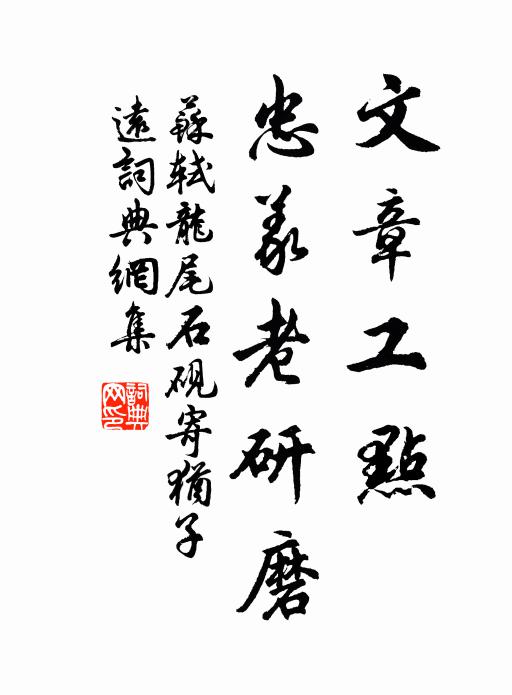 文章工點
忠義老研磨
蘇軾龍尾石硯寄猶子
遠詞典網集
詞典网印